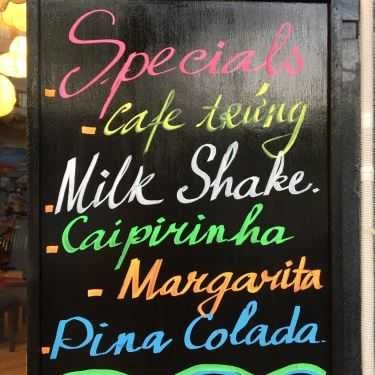 Specials
- Cafe trứng
Milk Shake.
- Caipirinha
- Margarita
- Pina Colada